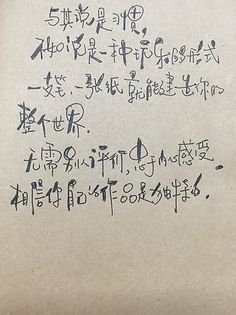 与其说是习惯,
不如说是一种玩乐的形式
一支笔,一张纸就能建造你的
整个世界.
无需别人评价,忠于内心感受
相信你自己的作品是独特的.